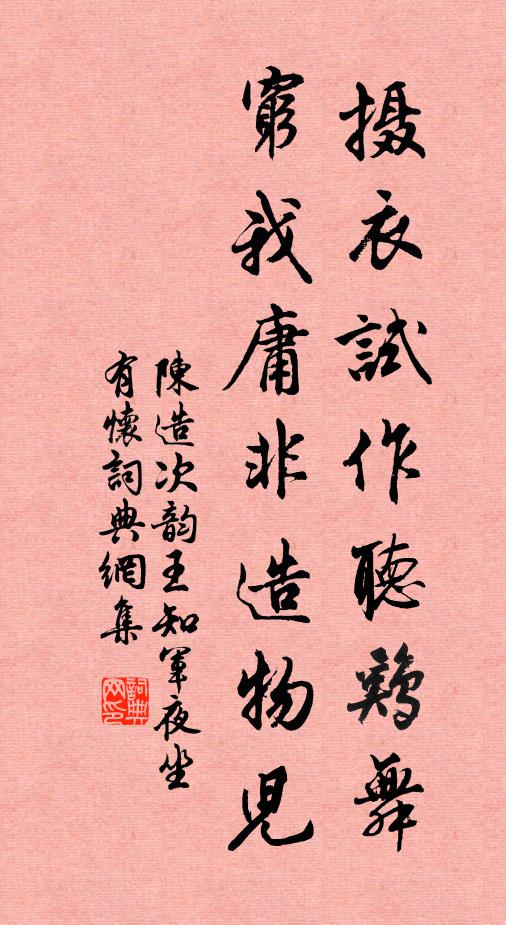 摄衣試作聽鷄舞
窮我庸非造物兒
陳造次韵王知軍夜坐
有懷詞典網集
詞典
网印